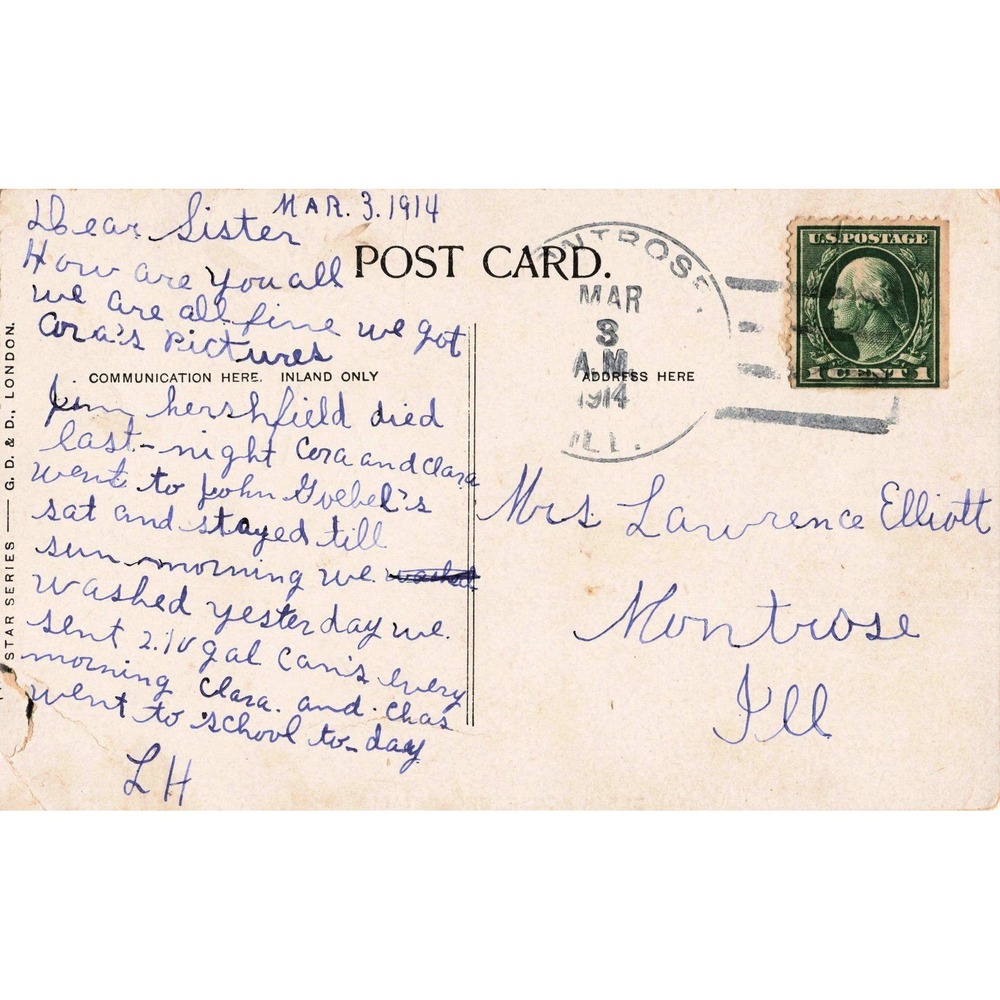 MAR. 3. 1914
Dear Sister
How are you all
we are all fine we got
Cora's Pictures
POST CARD.
COMMUNICATION HERE. INLAND ONLY
Jim hershfield died
last-night Cora and Clara
went to John Goebel's
sat and stayed till
sun morning we
washed yesterday we.
sent 2.10 gal can's every
morning Clara. and. Chas
went to school to-day
LH
STAR SERIES — G. D. & D., LONDON.
MAR
3
A.M.
1914
ILL.
U.S.POSTAGE
1 CENT 1
ADDRESS HERE
Mrs Lawrence Elliott
Montrose
Ill